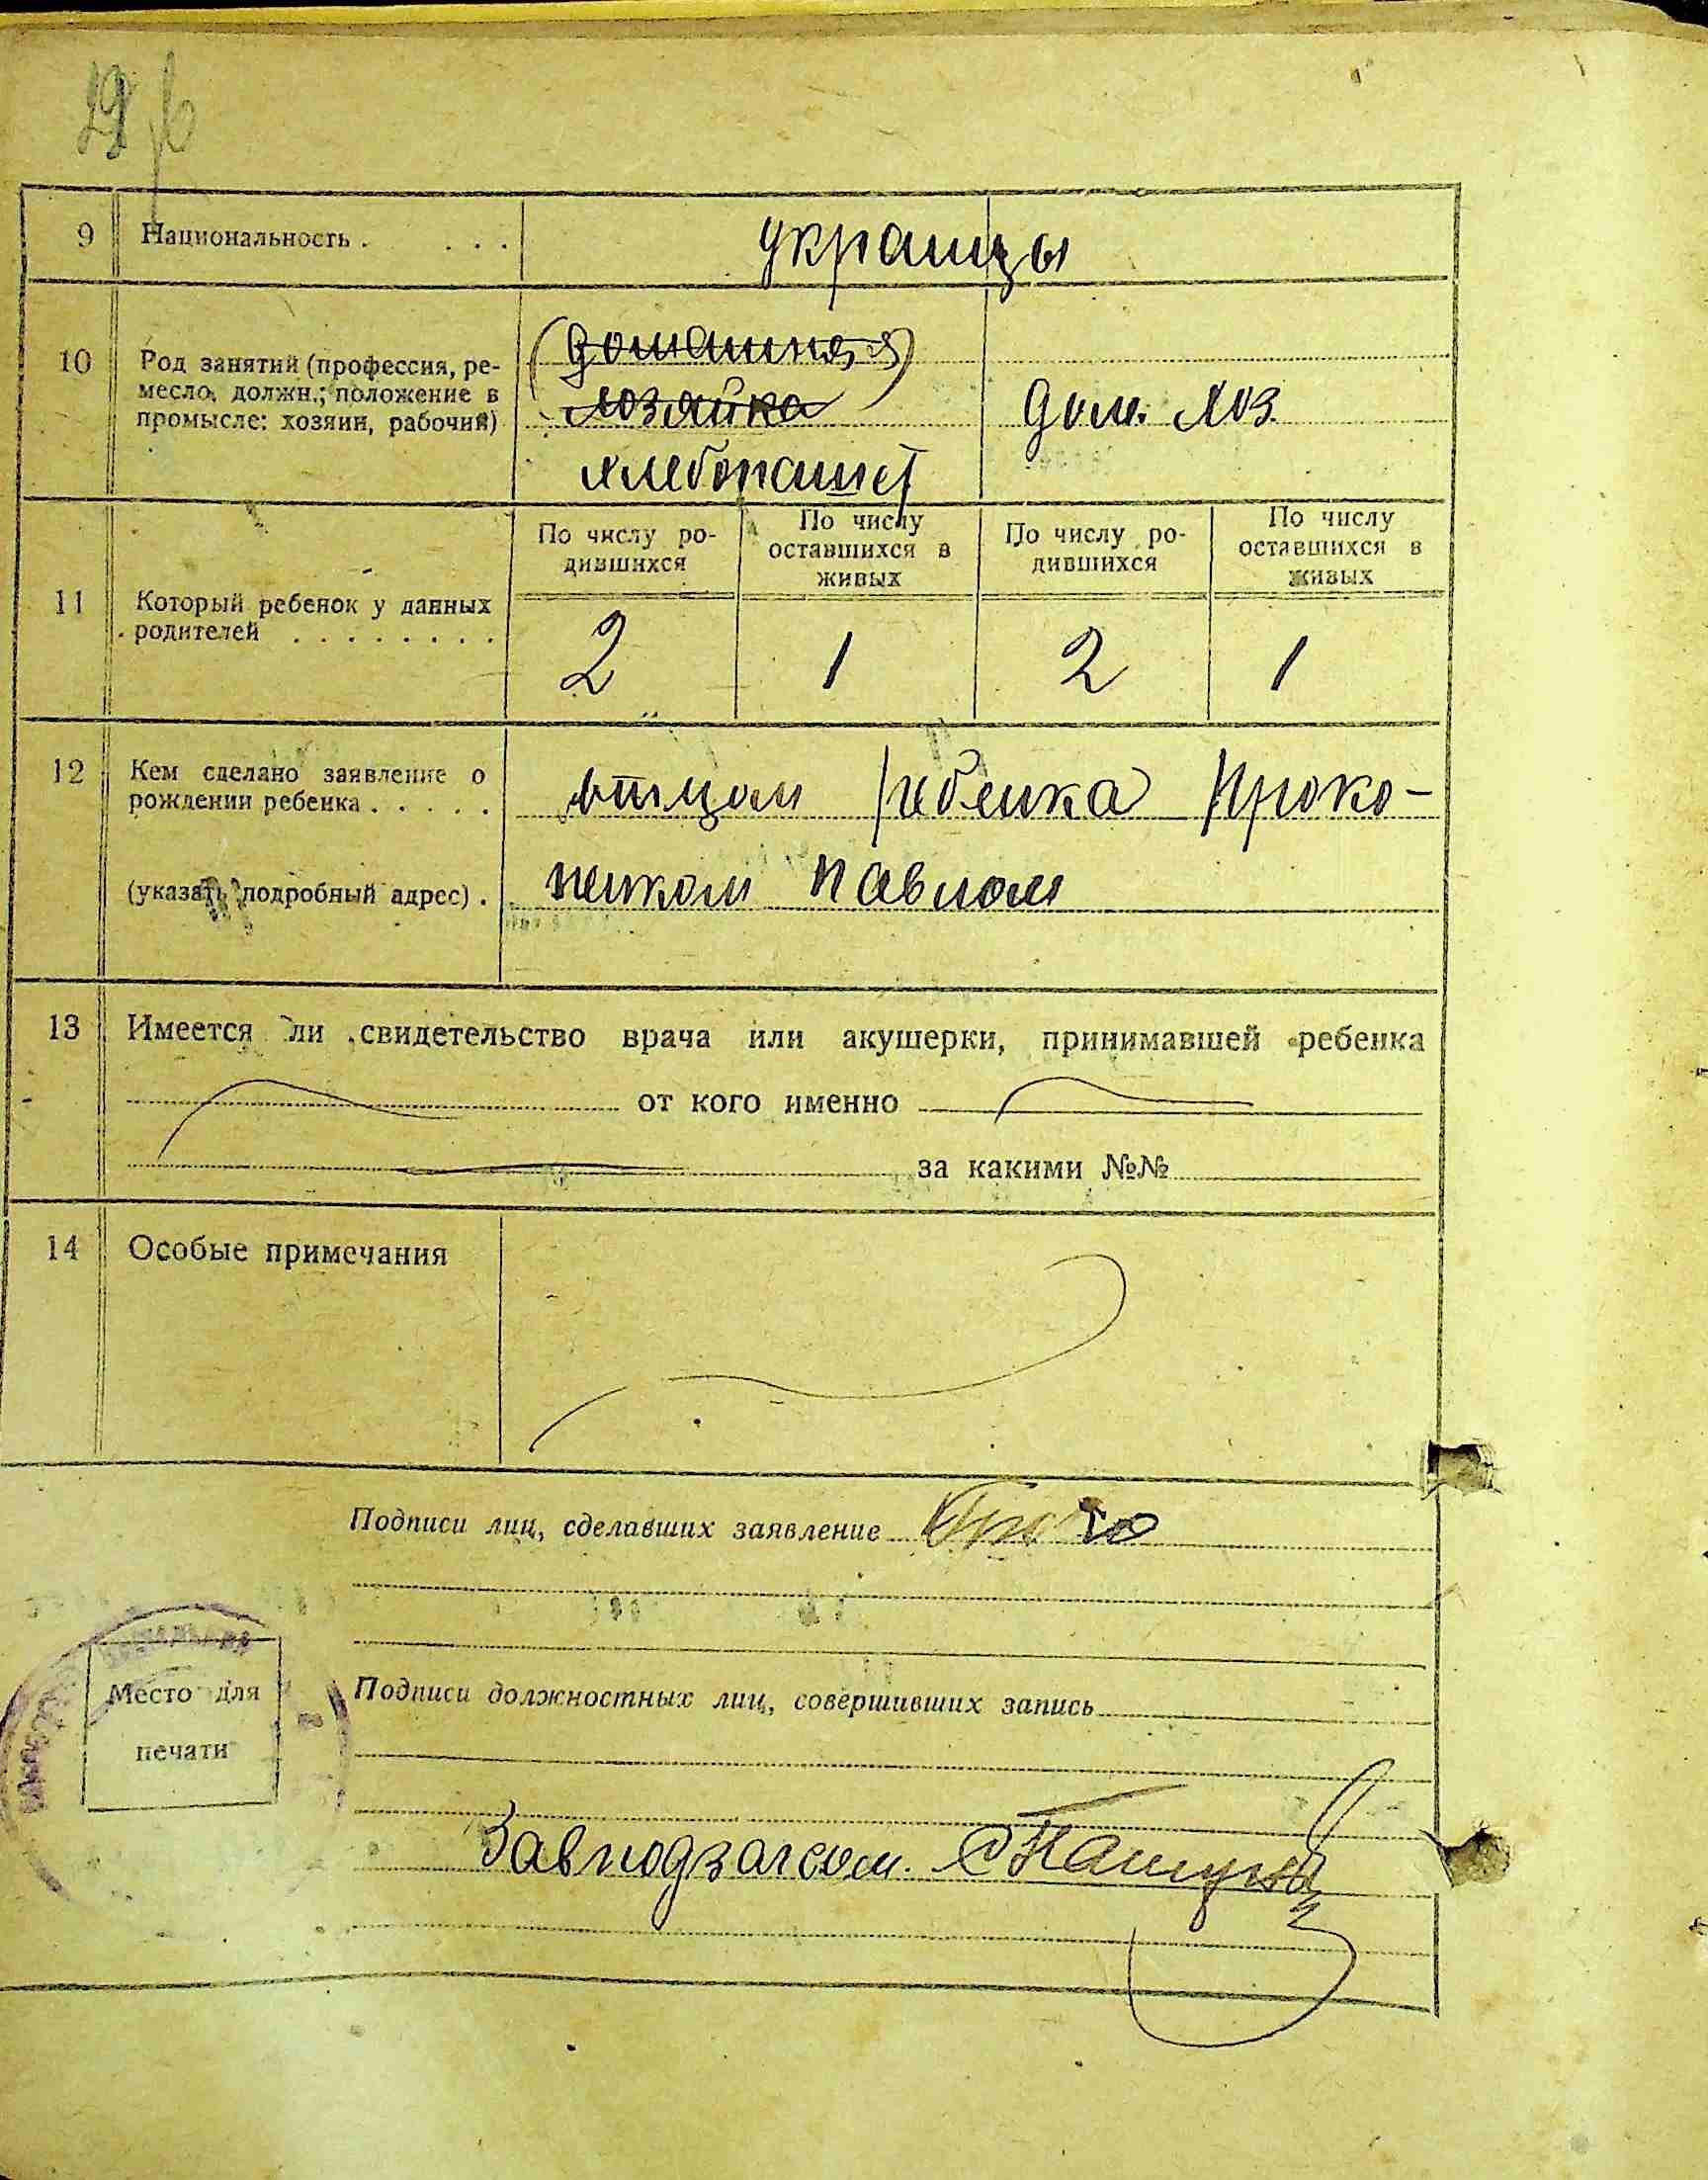 29
9 Национальность . . . . украинцы
10 Род занятий (профессия, ре-
месло, должн.; положение в
промысле: хозяин, рабочий)
(домашняя)
хозяйка
хлебопашец
дом. хоз.
11 Который ребенок у данных
родителей . . . . . . . .
По числу ро-
дившихся
По числу
оставшихся в
живых
По числу ро-
дившихся
По числу
оставшихся в
живых
2 1 2 1
12 Кем сделано заявление о
рождении ребенка . . . . .
(указать подробный адрес) .
отцом ребенка Проко-
пенком Павлом
13 Имеется ли свидетельство врача или акушерки, принимавшей ребенка
от кого именно
за какими №№
14 Особые примечания
Подписи лиц, сделавших заявление
Место для
печати
Подписи должностных лиц, совершивших запись
Завподзагсом.